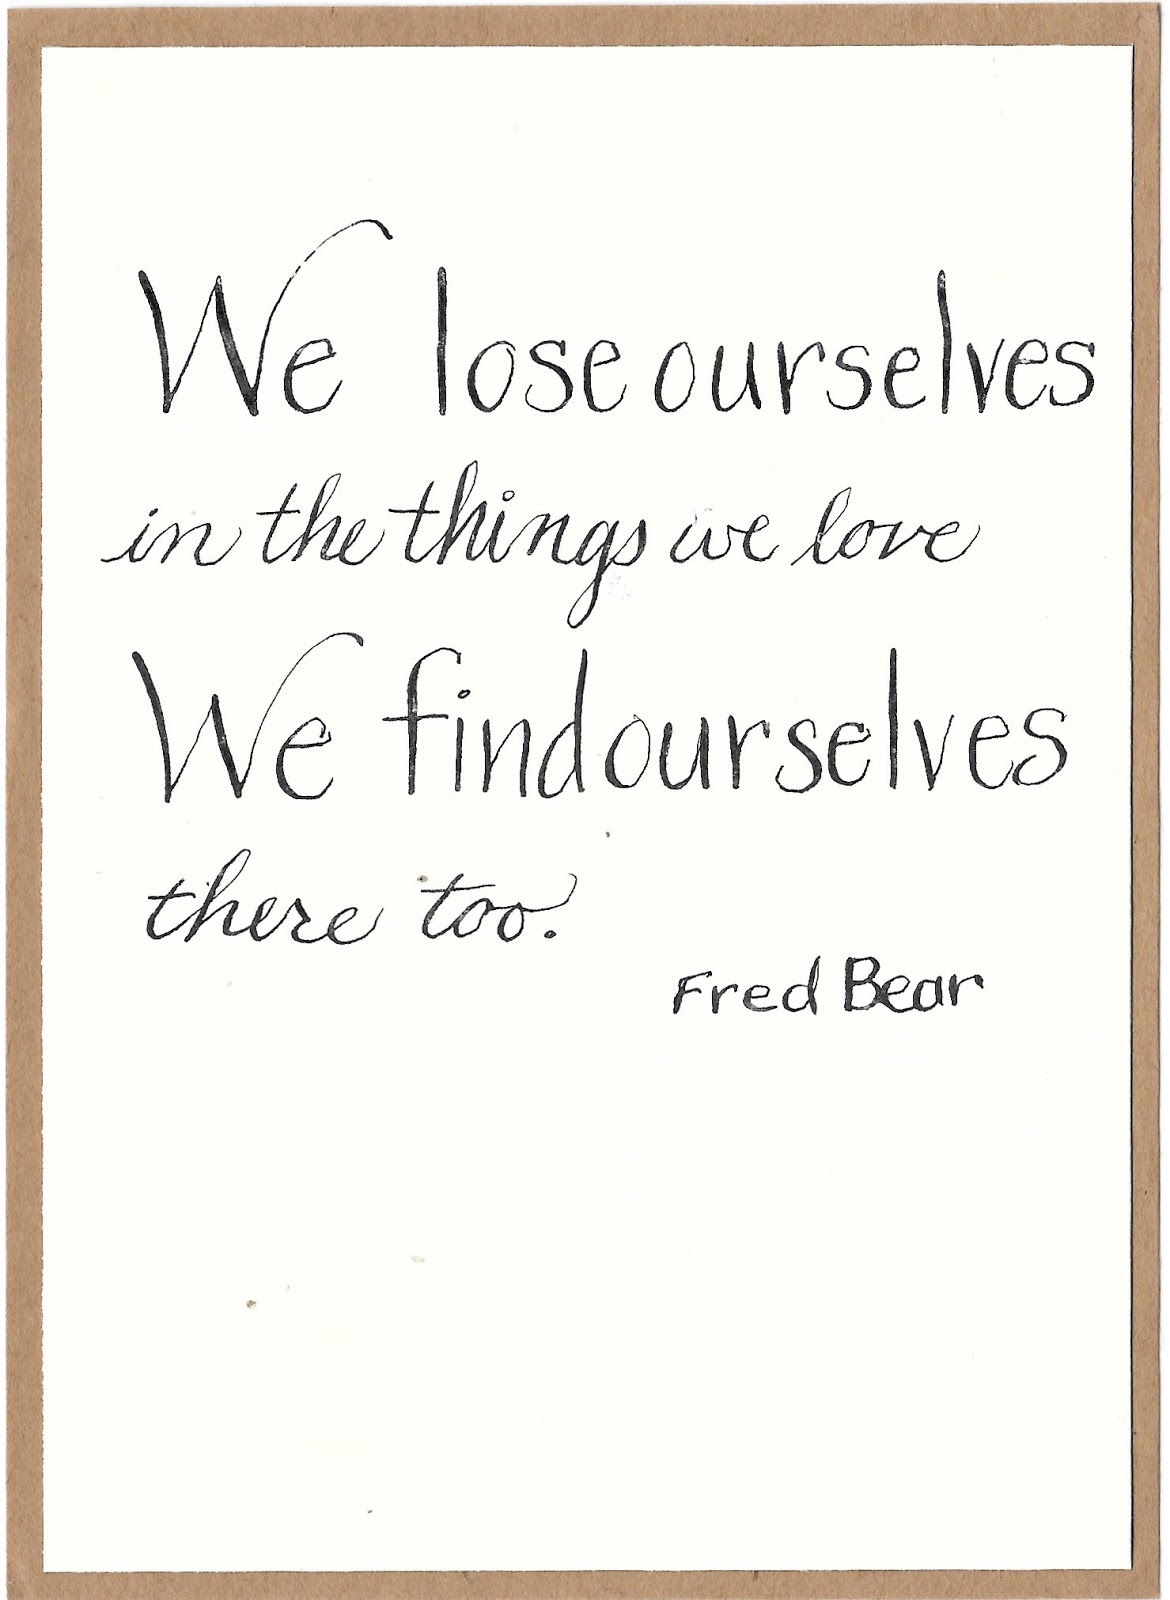 We lose ourselves
in the things we love
We find ourselves
there too.
Fred Bear